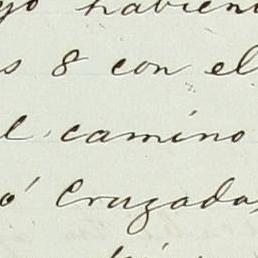 yo habien
s 8 con el
el camino
ó Cruzada